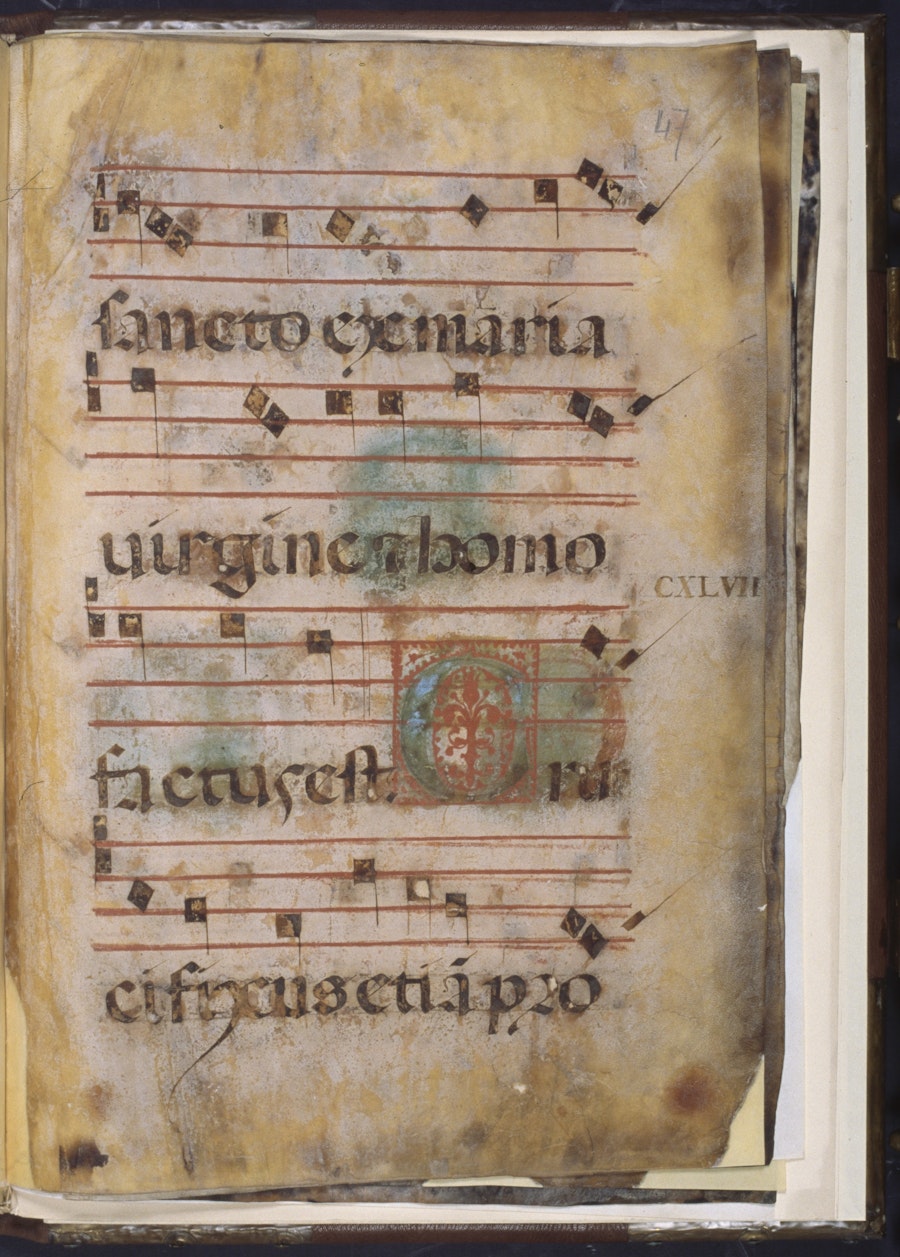 47
sancto ex maria
uirgine & homo
CXLVII
factus est. Cru
cifixus etiã pro